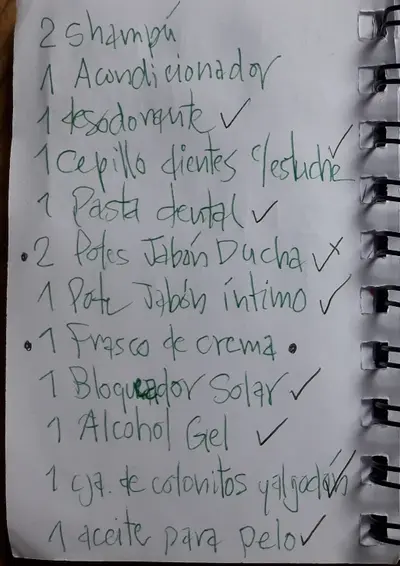 2 shampú
1 Acondicionador
1 desodorante ✓
1 cepillo dientes c/estuche ✓
1 Pasta dental ✓
• 2 Potes Jabón Ducha ✓
1 Pote Jabón íntimo ✓
• 1 Frasco de crema •
1 Bloqueador Solar ✓
1 Alcohol Gel ✓
1 cja. de colonitos y algodón ✓
1 aceite para pelo ✓